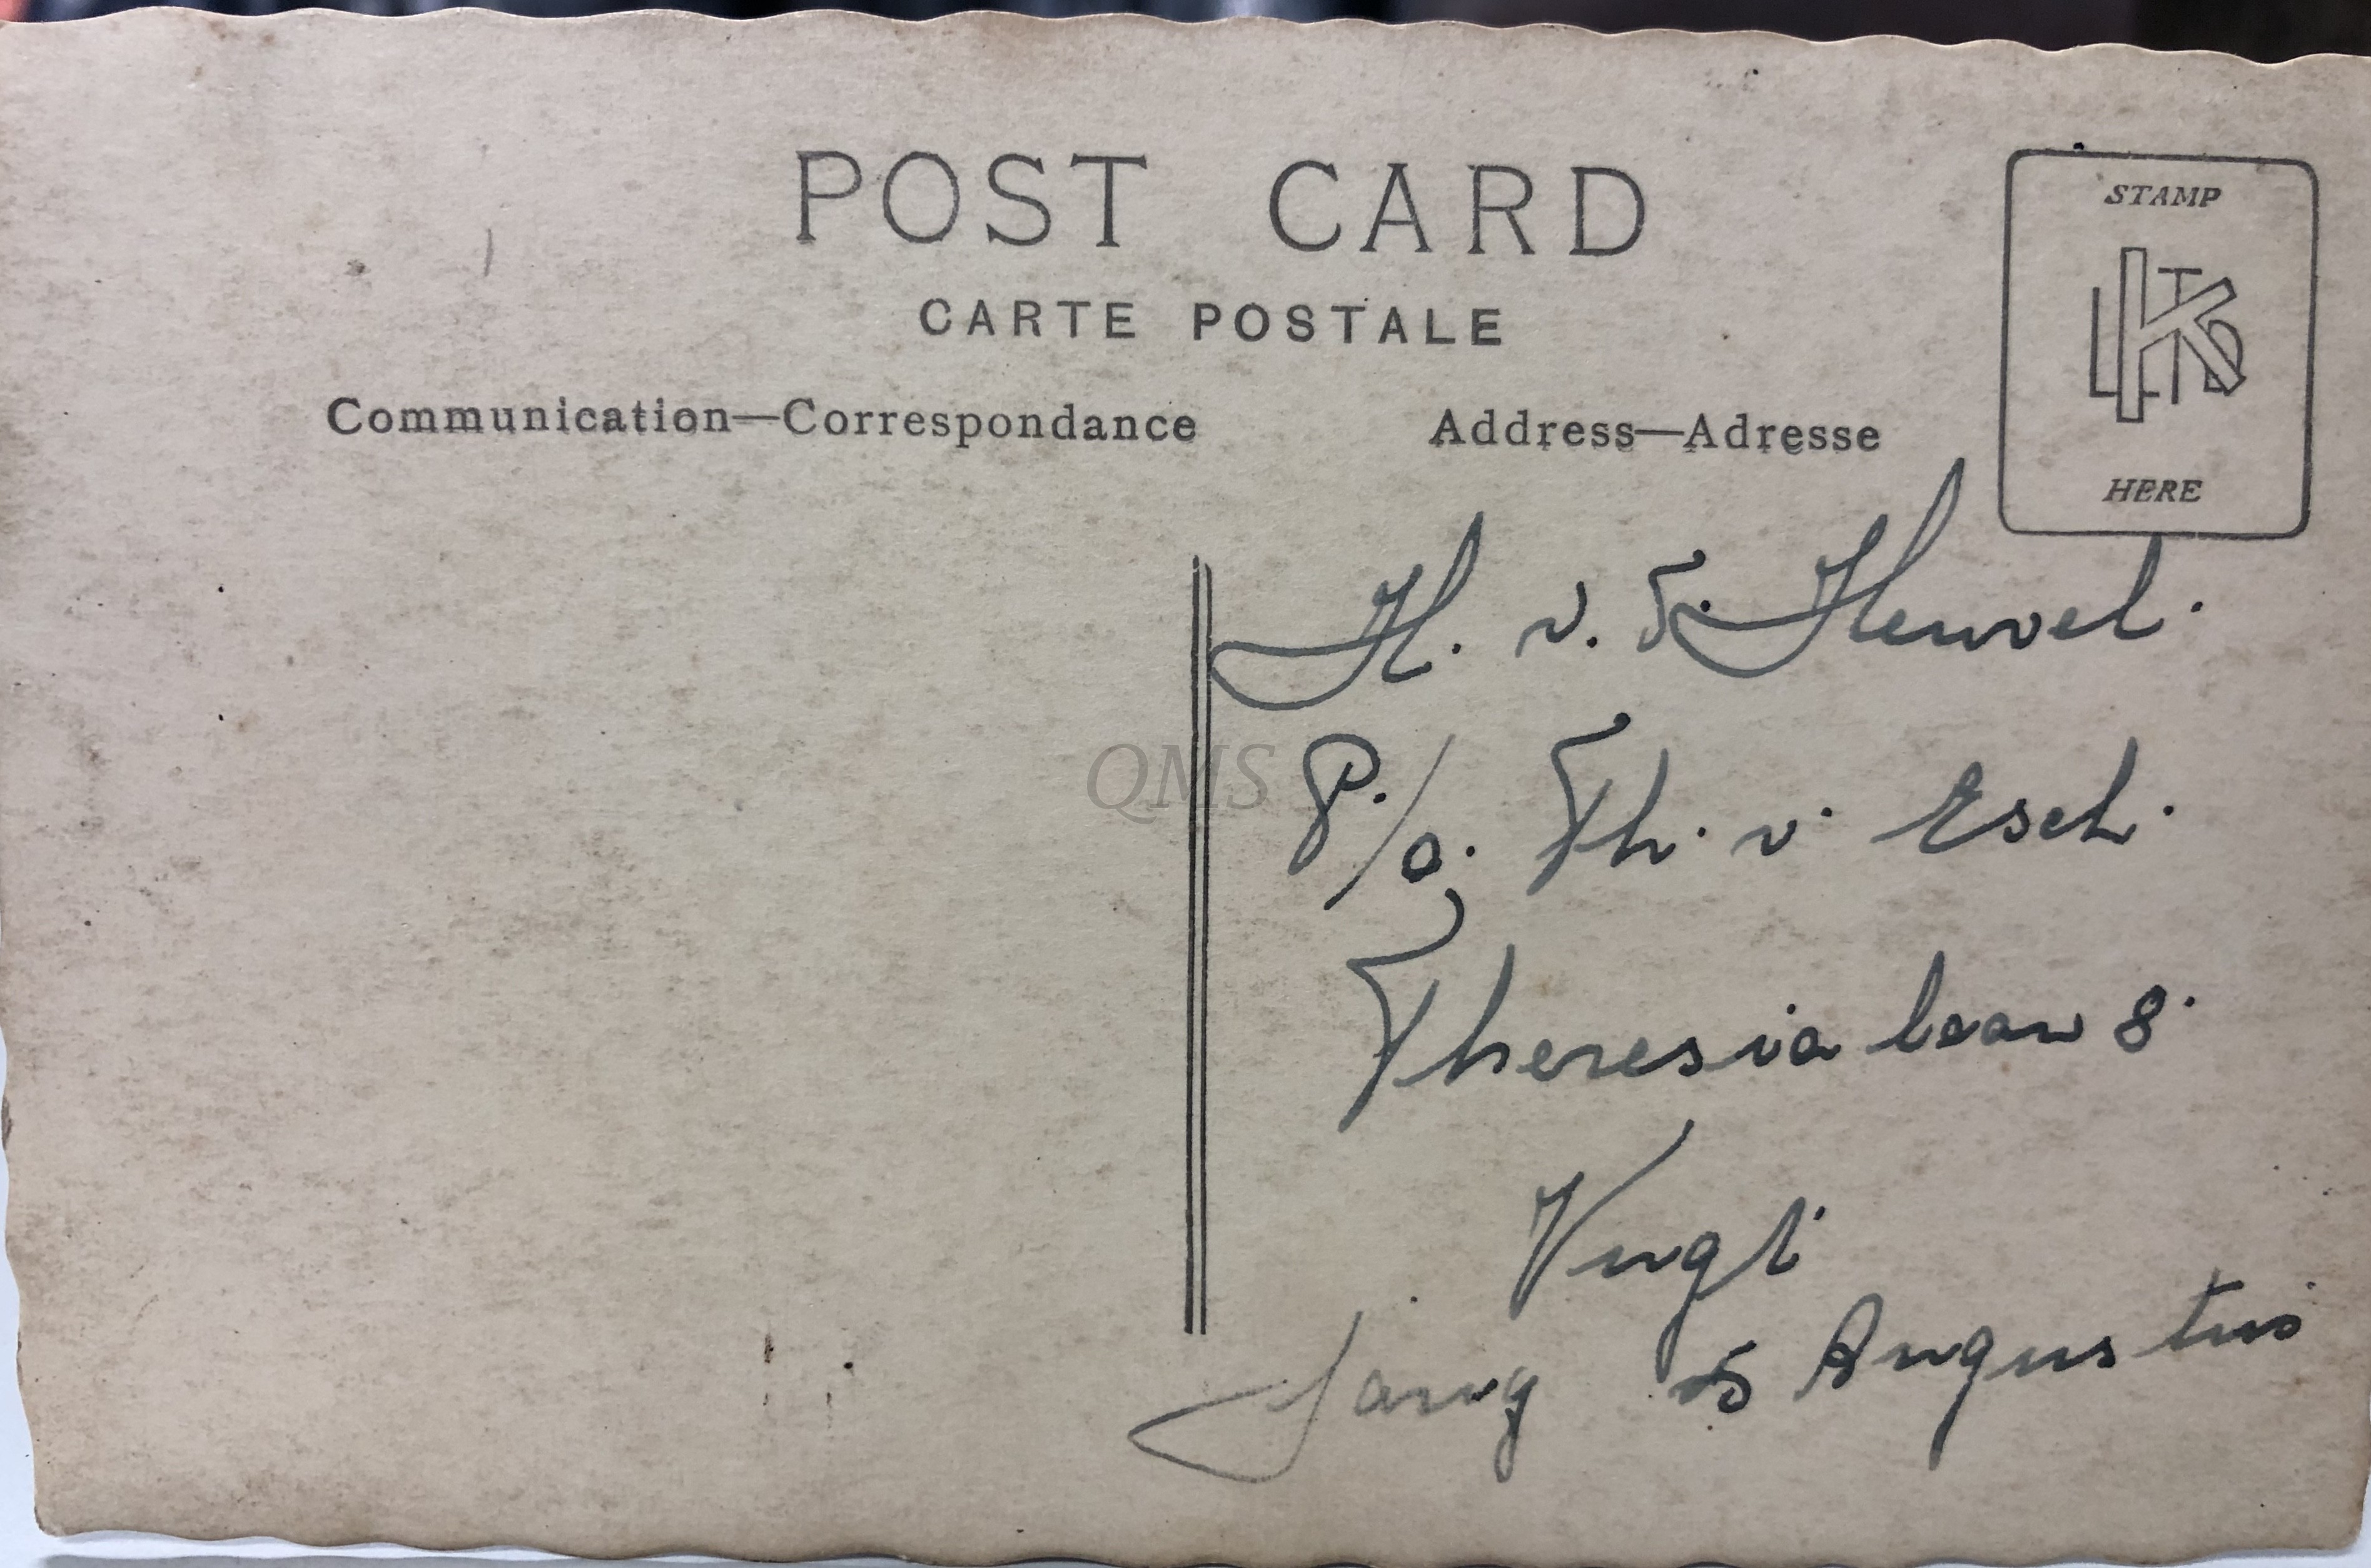 POST CARD
CARTE POSTALE
Communication—Correspondance
Address—Adresse
STAMP
KLTD
HERE
H. v. d. Heuvel.
P./o. Th. v. Esch.
Theresia laan 8.
Vugt
5 Augustus
QMS